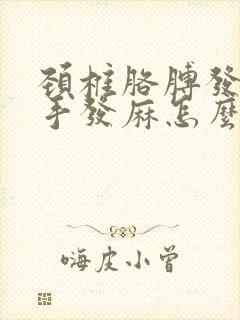 頸椎胳膊發
手發麻怎麼
嗨皮小曾